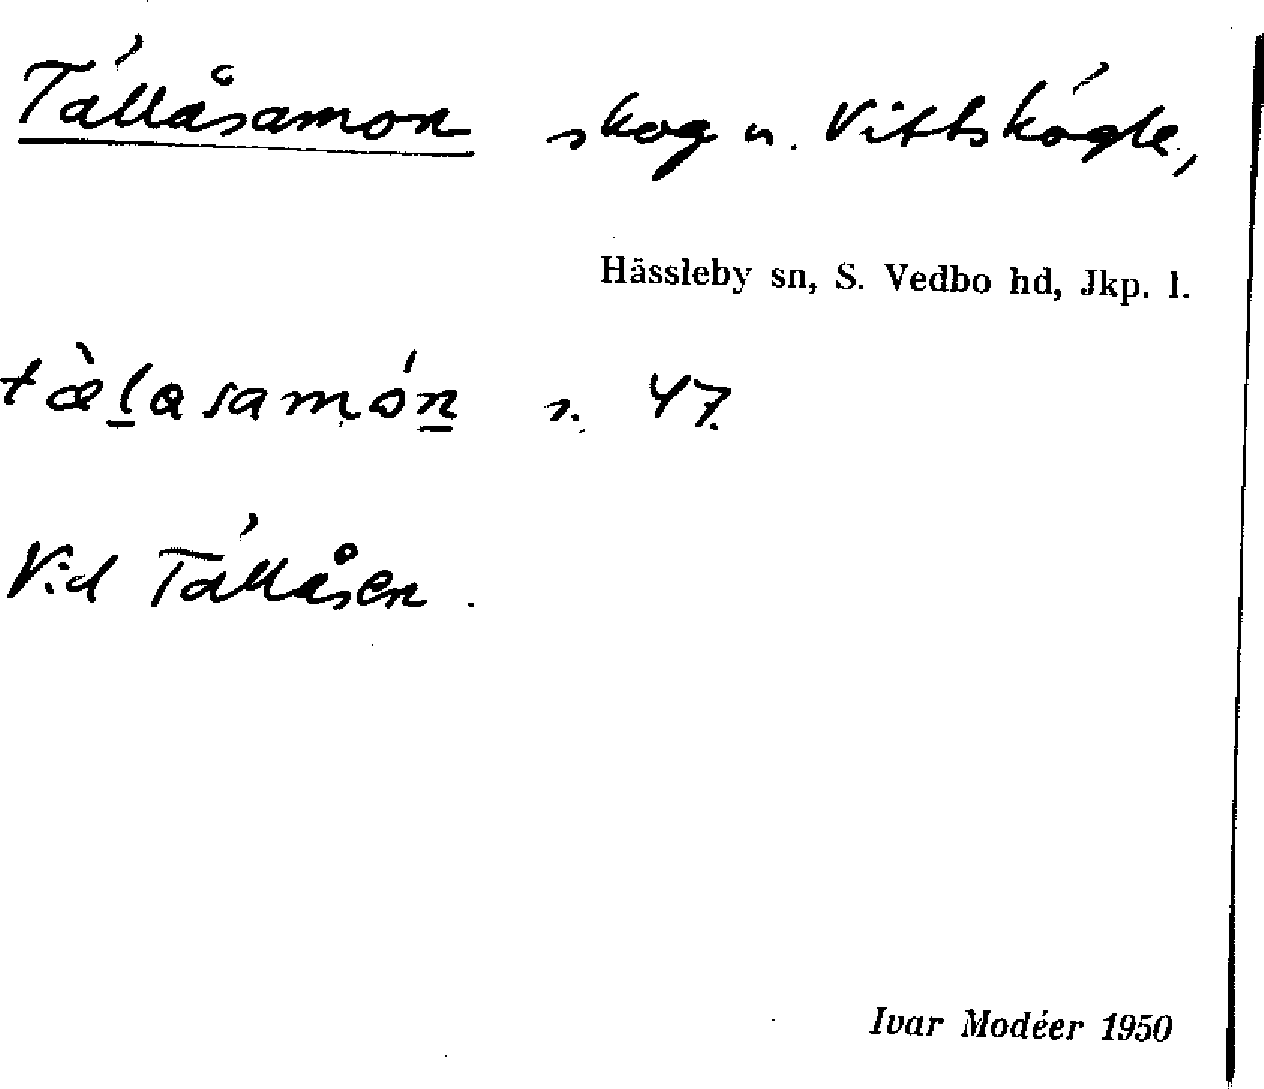 Tállåsamon skog u. Vittskógle,
Hässleby sn, S. Vedbo hd, Jkp. l.
tæ̀l̲asamón̲ s. 47.
Vid Tállåsen.
Ivar Modéer 1950